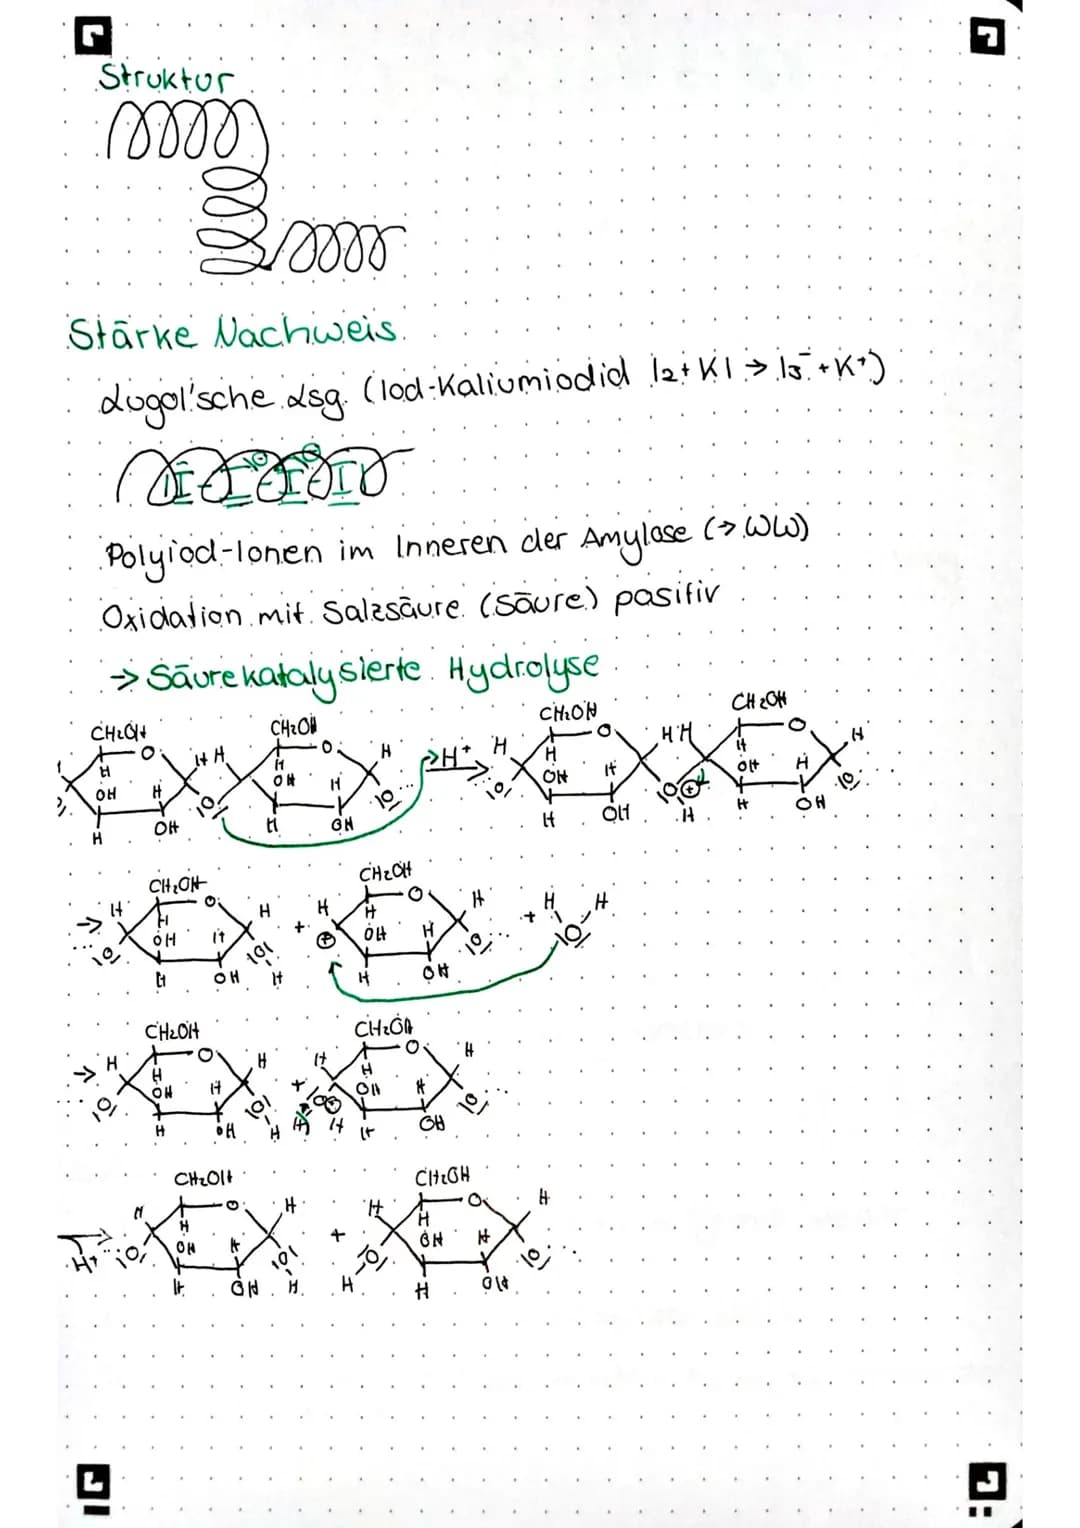 Struktur
Stärke Nachweis.
Lugol'sche Lsg. (Iod-Kaliumiodid I2 + KI → I3⁻ + K⁺)
I I I I
Polyiod-Ionen im Inneren der Amylase (→ WW)
Oxidation mit Salzsäure (Säure) positiv
→ Säurekatalysierte Hydrolyse
CH2OH CH2OH CH2OH CH2OH
O H H O H H⁺ H O H H O H
H OH H H OH H H OH H H OH H
H OH H OH H OH H H OH
CH2OH CH2OH
→ H O H + H O H + H H
OH H H OH H O
H OH H H OH
CH2OH CH2OH
→ H O H + H O H
H OH H H OH H
H OH H H H H OH
CH2OH CH2OH
H⁺ → H O H + H O H
H OH H H OH H
H OH H H H OH